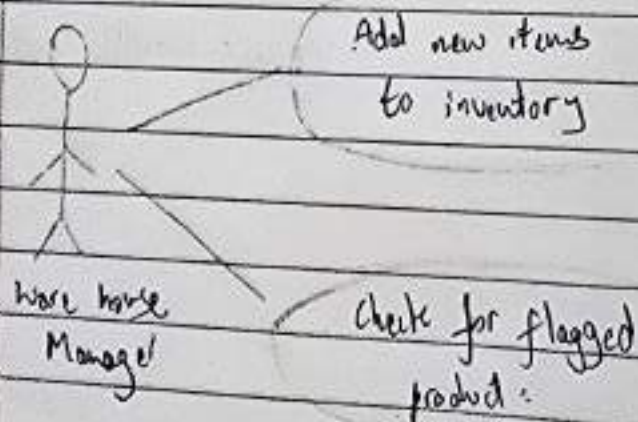 Add new items
to inventory
Ware house
Manager
Check for flagged
product: